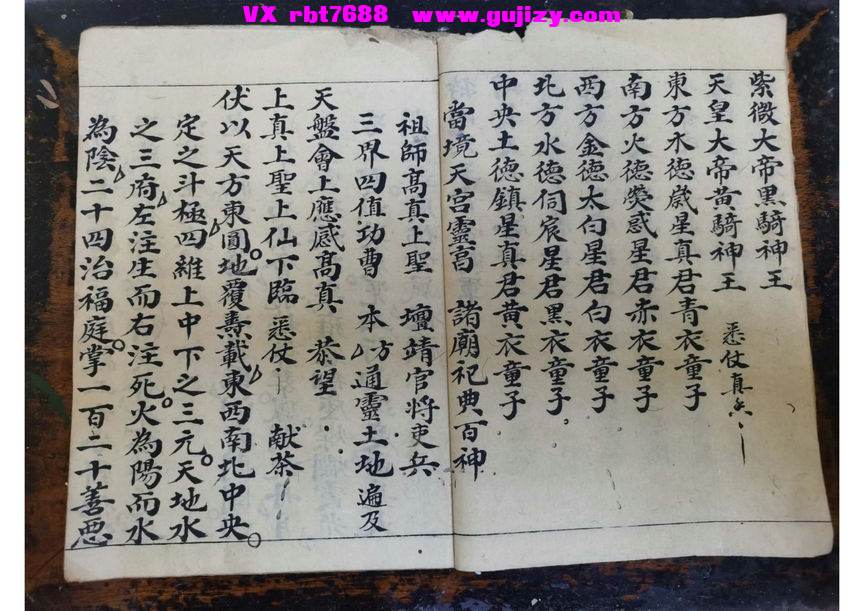 VX rbt7688 www.gujizy.com
紫微大帝黑騎神王
天皇大帝黄騎神王 悉仗真
東方木德歲星真君青衣童子
南方火德熒惑星君赤衣童子
西方金德太白星君白衣童子
北方水德伺宸星君黑衣童子
中央土德鎮星真君黄衣童子
當境天宫靈 諸廟祀典百神
祖師髙真上聖 壇靖官将吏兵
三界四值功曹 本方通靈土地遍及
天盤會上應感髙真 恭望
上真上聖上仙下臨 悉仗 献茶
伏以天方東圓地覆燾載東西南北中央
定之斗極四維上中下之三元天地水
之三府左注生而右注死火為陽而水
為陰二十四治福庭掌一百二十善惡